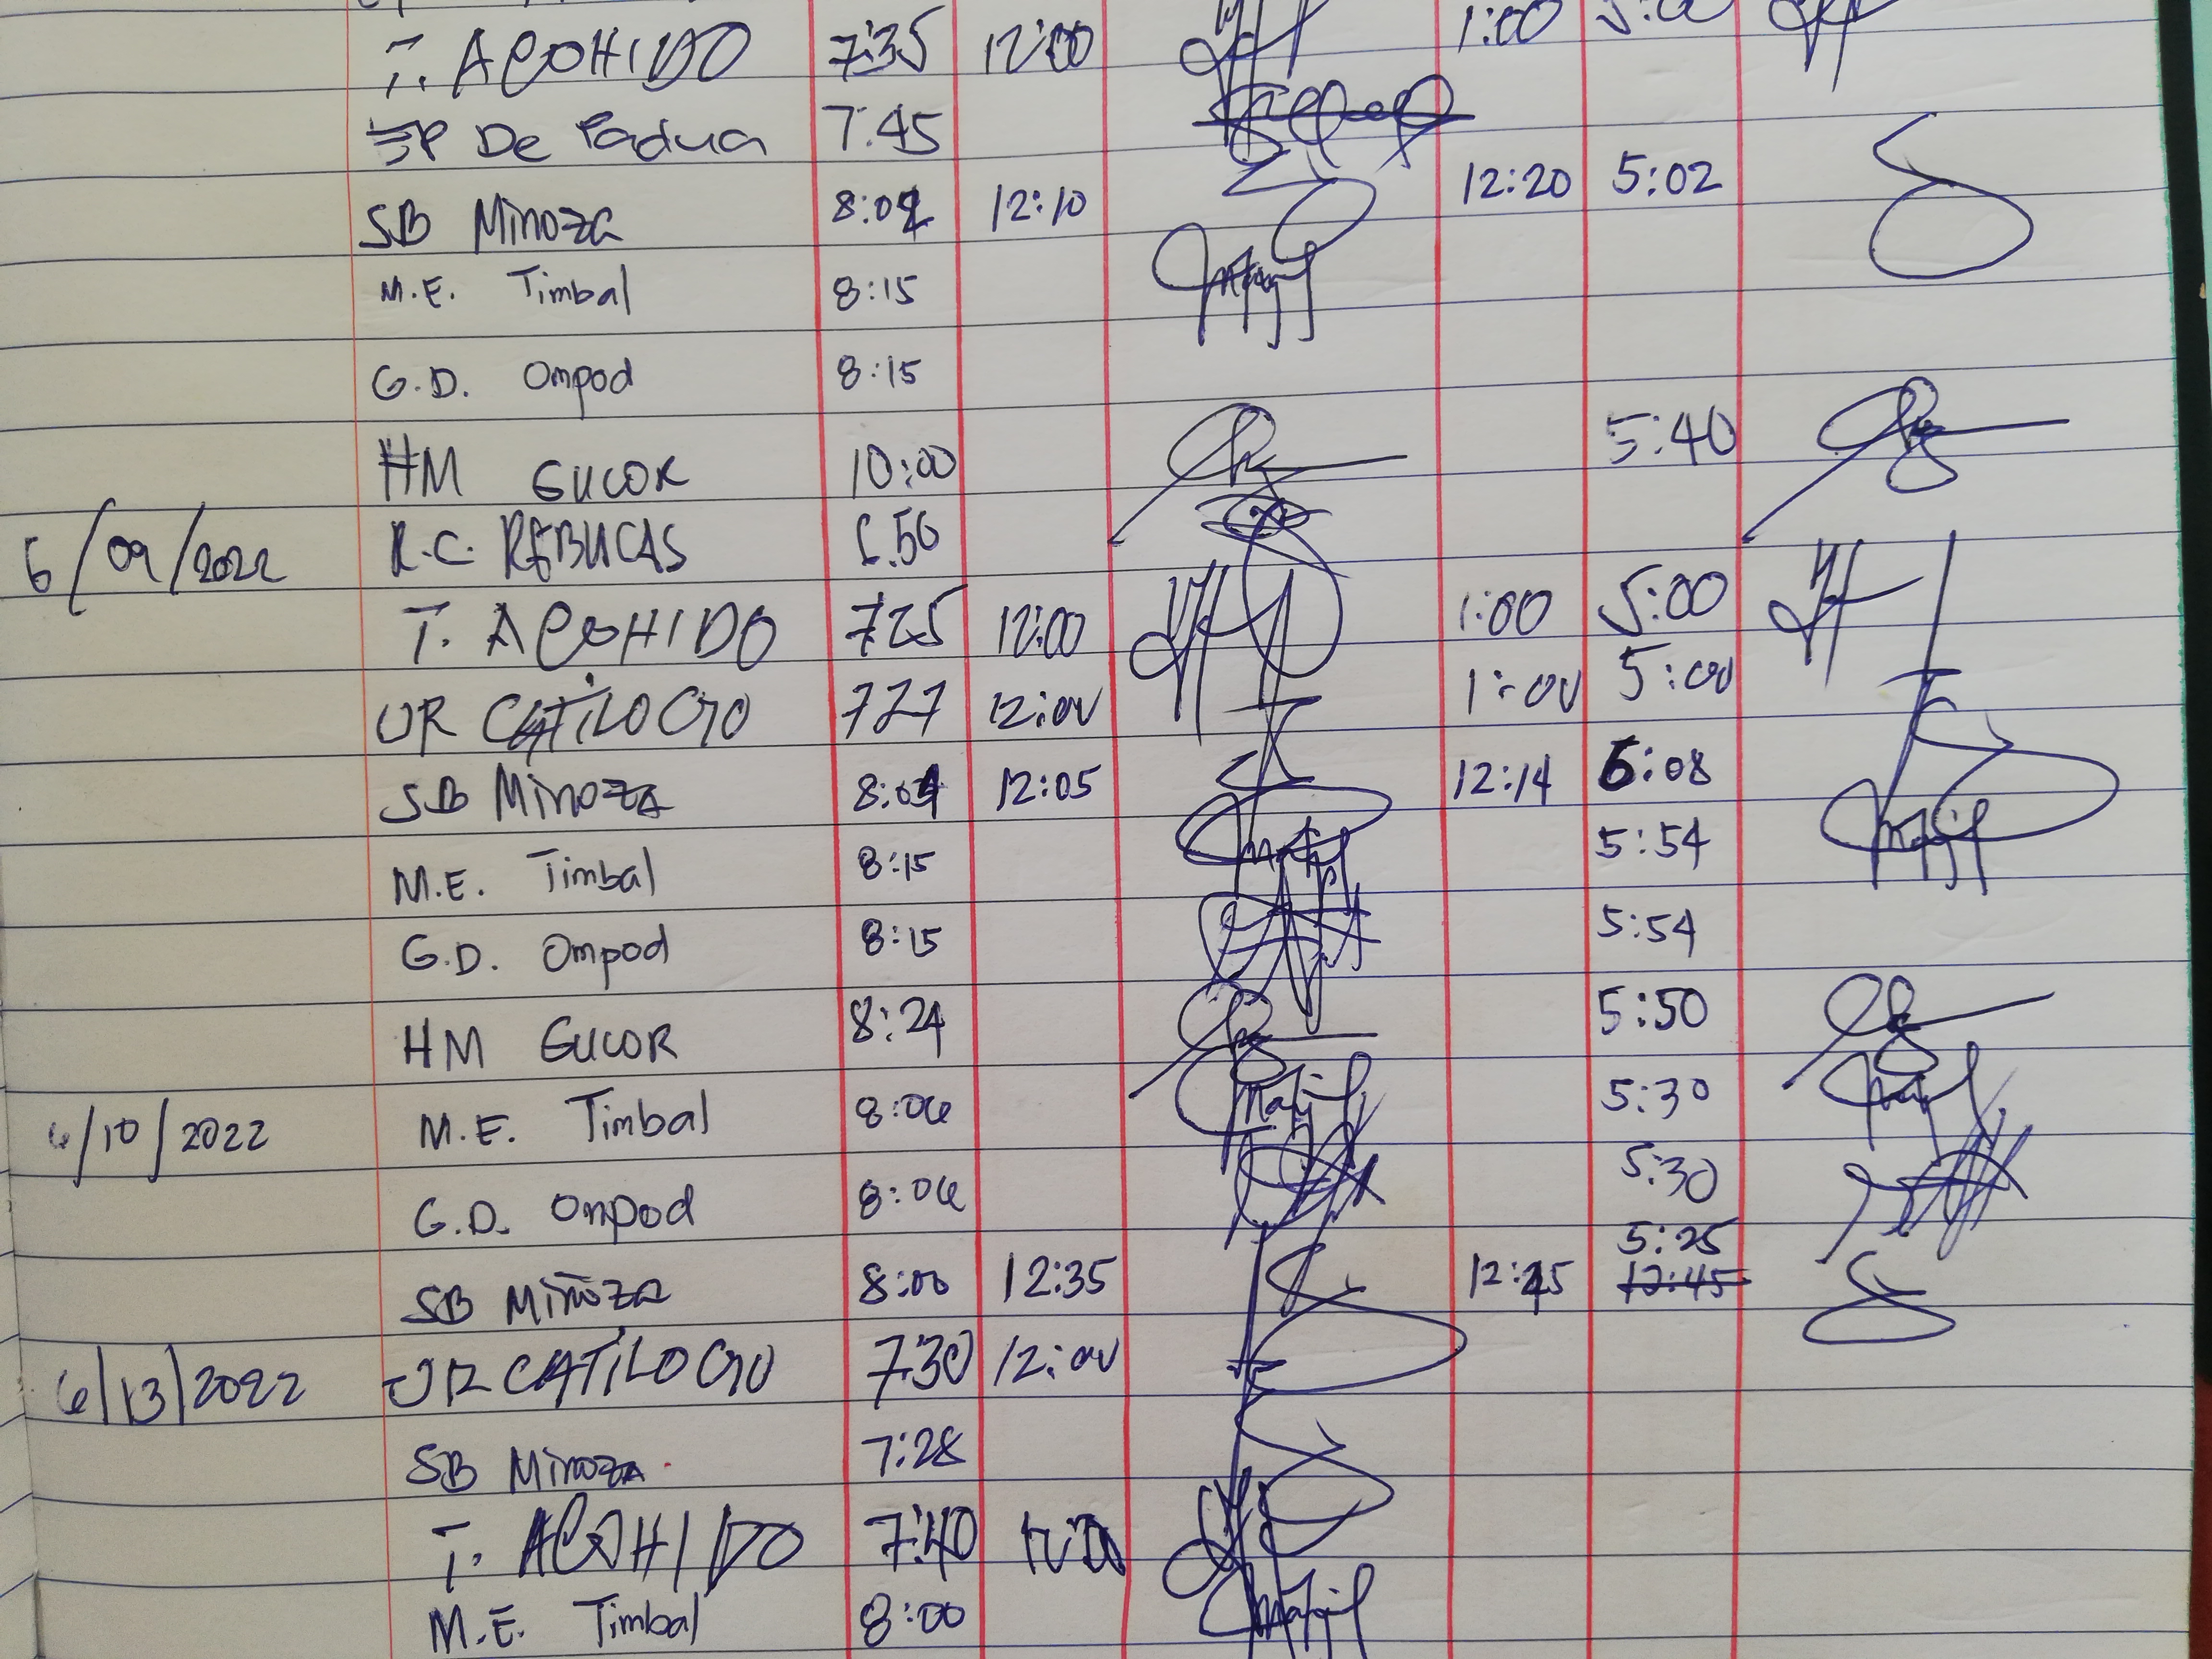 T. ACOHIDO 7:35 12:00 1:00 5:00
De Padua 7:45
SB Minoza 8:02 12:10 12:20 5:02
M.E. Timbal 8:15
G.D. Ompod 8:15
HM GUCOR 10:00 5:40
6/09/2022 R.C. REBUCAS 6:50
T. ACOHIDO 725 12:00 1:00 5:00
JR CATILOGO 727 12:00 1:00 5:00
SB Minoza 8:04 12:05 12:14 6:08
M.E. Timbal 8:15 5:54
G.D. Ompod 8:15 5:54
HM GUCOR 8:24 5:50
6/10/2022 M.E. Timbal 8:06 5:30
G.D. Ompod 8:06 5:30
5:25
SB Miñoza 8:00 12:35 12:45 12:45
6/13/2022 JR CATILOGO 730 12:00
SB Minoza 7:28
T. ACOHIDO 7:40 12:00
M.E. Timbal 8:00